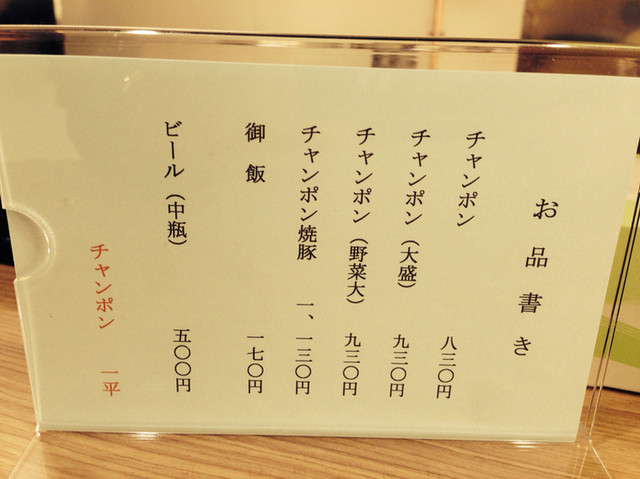 お品書き
チャンポン 八三〇円
チャンポン（大盛） 九三〇円
チャンポン（野菜大） 九三〇円
チャンポン焼豚 一、一三〇円
御飯 一七〇円
ビール（中瓶） 五〇〇円
チャンポン 一平